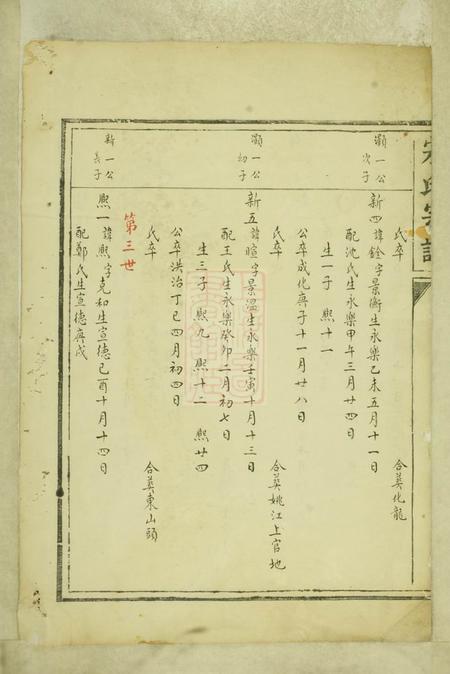 宋氏宗譜
氏卒
合葬化龍
灝一公
次子
新四諱銓字景衡生永樂乙未五月十一日
配沈氏生永樂甲午三月廿四日
生一子 熙十一
公卒成化庚子十一月廿八日
氏卒
合葬姚江上官地
灝一公
幼子
新五諱暄字景溫生永樂壬寅十月十三日
配王氏生永樂癸卯二月初七日
生三子 熙九 熙十二 熙廿四
公卒洪治丁巳四月初四日
氏卒
合葬東山頭
第三世
新一公
長子
熙一諱熙字克和生宣德己酉十月十四日
配鄭氏生宣德庚戌